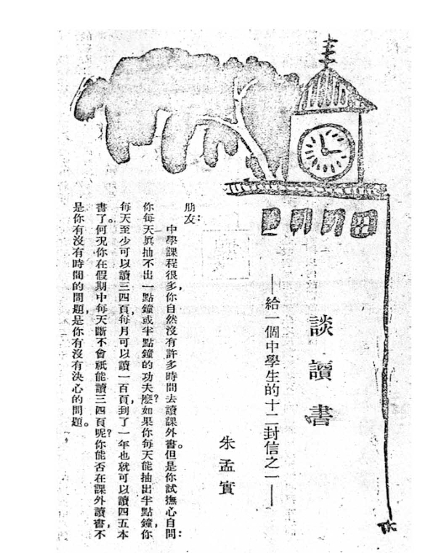 談讀書
——給一個中學生的十二封信之一——
朱孟實
朋友:
中學課程很多,你自然沒有許多時間去讀課外書。但是你試撫心自問:
你每天真抽不出一點鐘或半點鐘的功夫麼?如果你每天能抽出半點鐘,你
每天至少可以讀三四頁,每月可以讀一百頁,到了一年也就可以讀四五本
書了。何況你在假期中每天斷不會祇能讀三四頁呢?你能否在課外讀書,不
是你有沒有時間的問題,是你有沒有決心的問題。